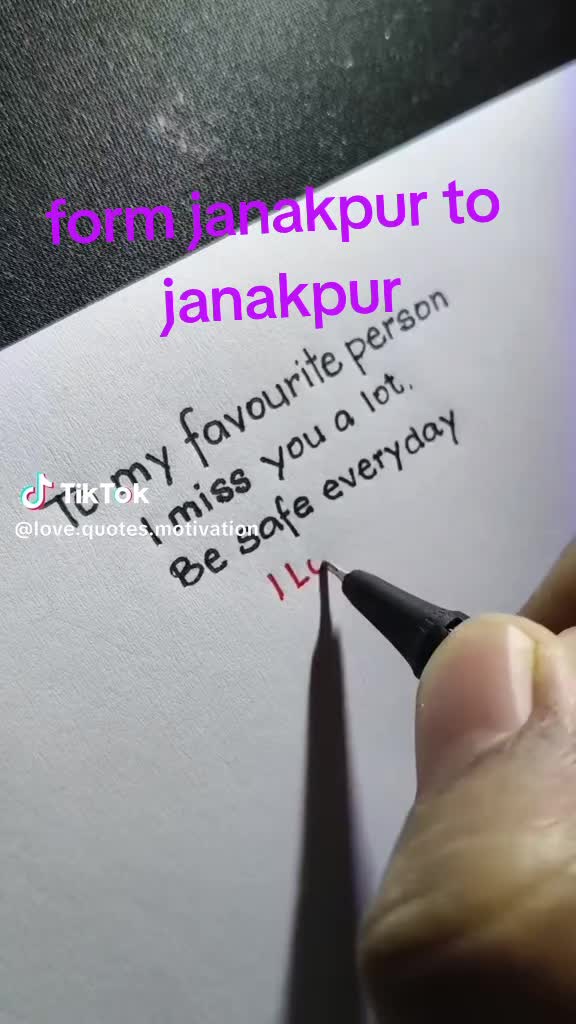 form janakpur to
janakpur
To my favourite person
I miss you a lot.
Be safe everyday
I Lo
TikTok
@love.quotes.motivation